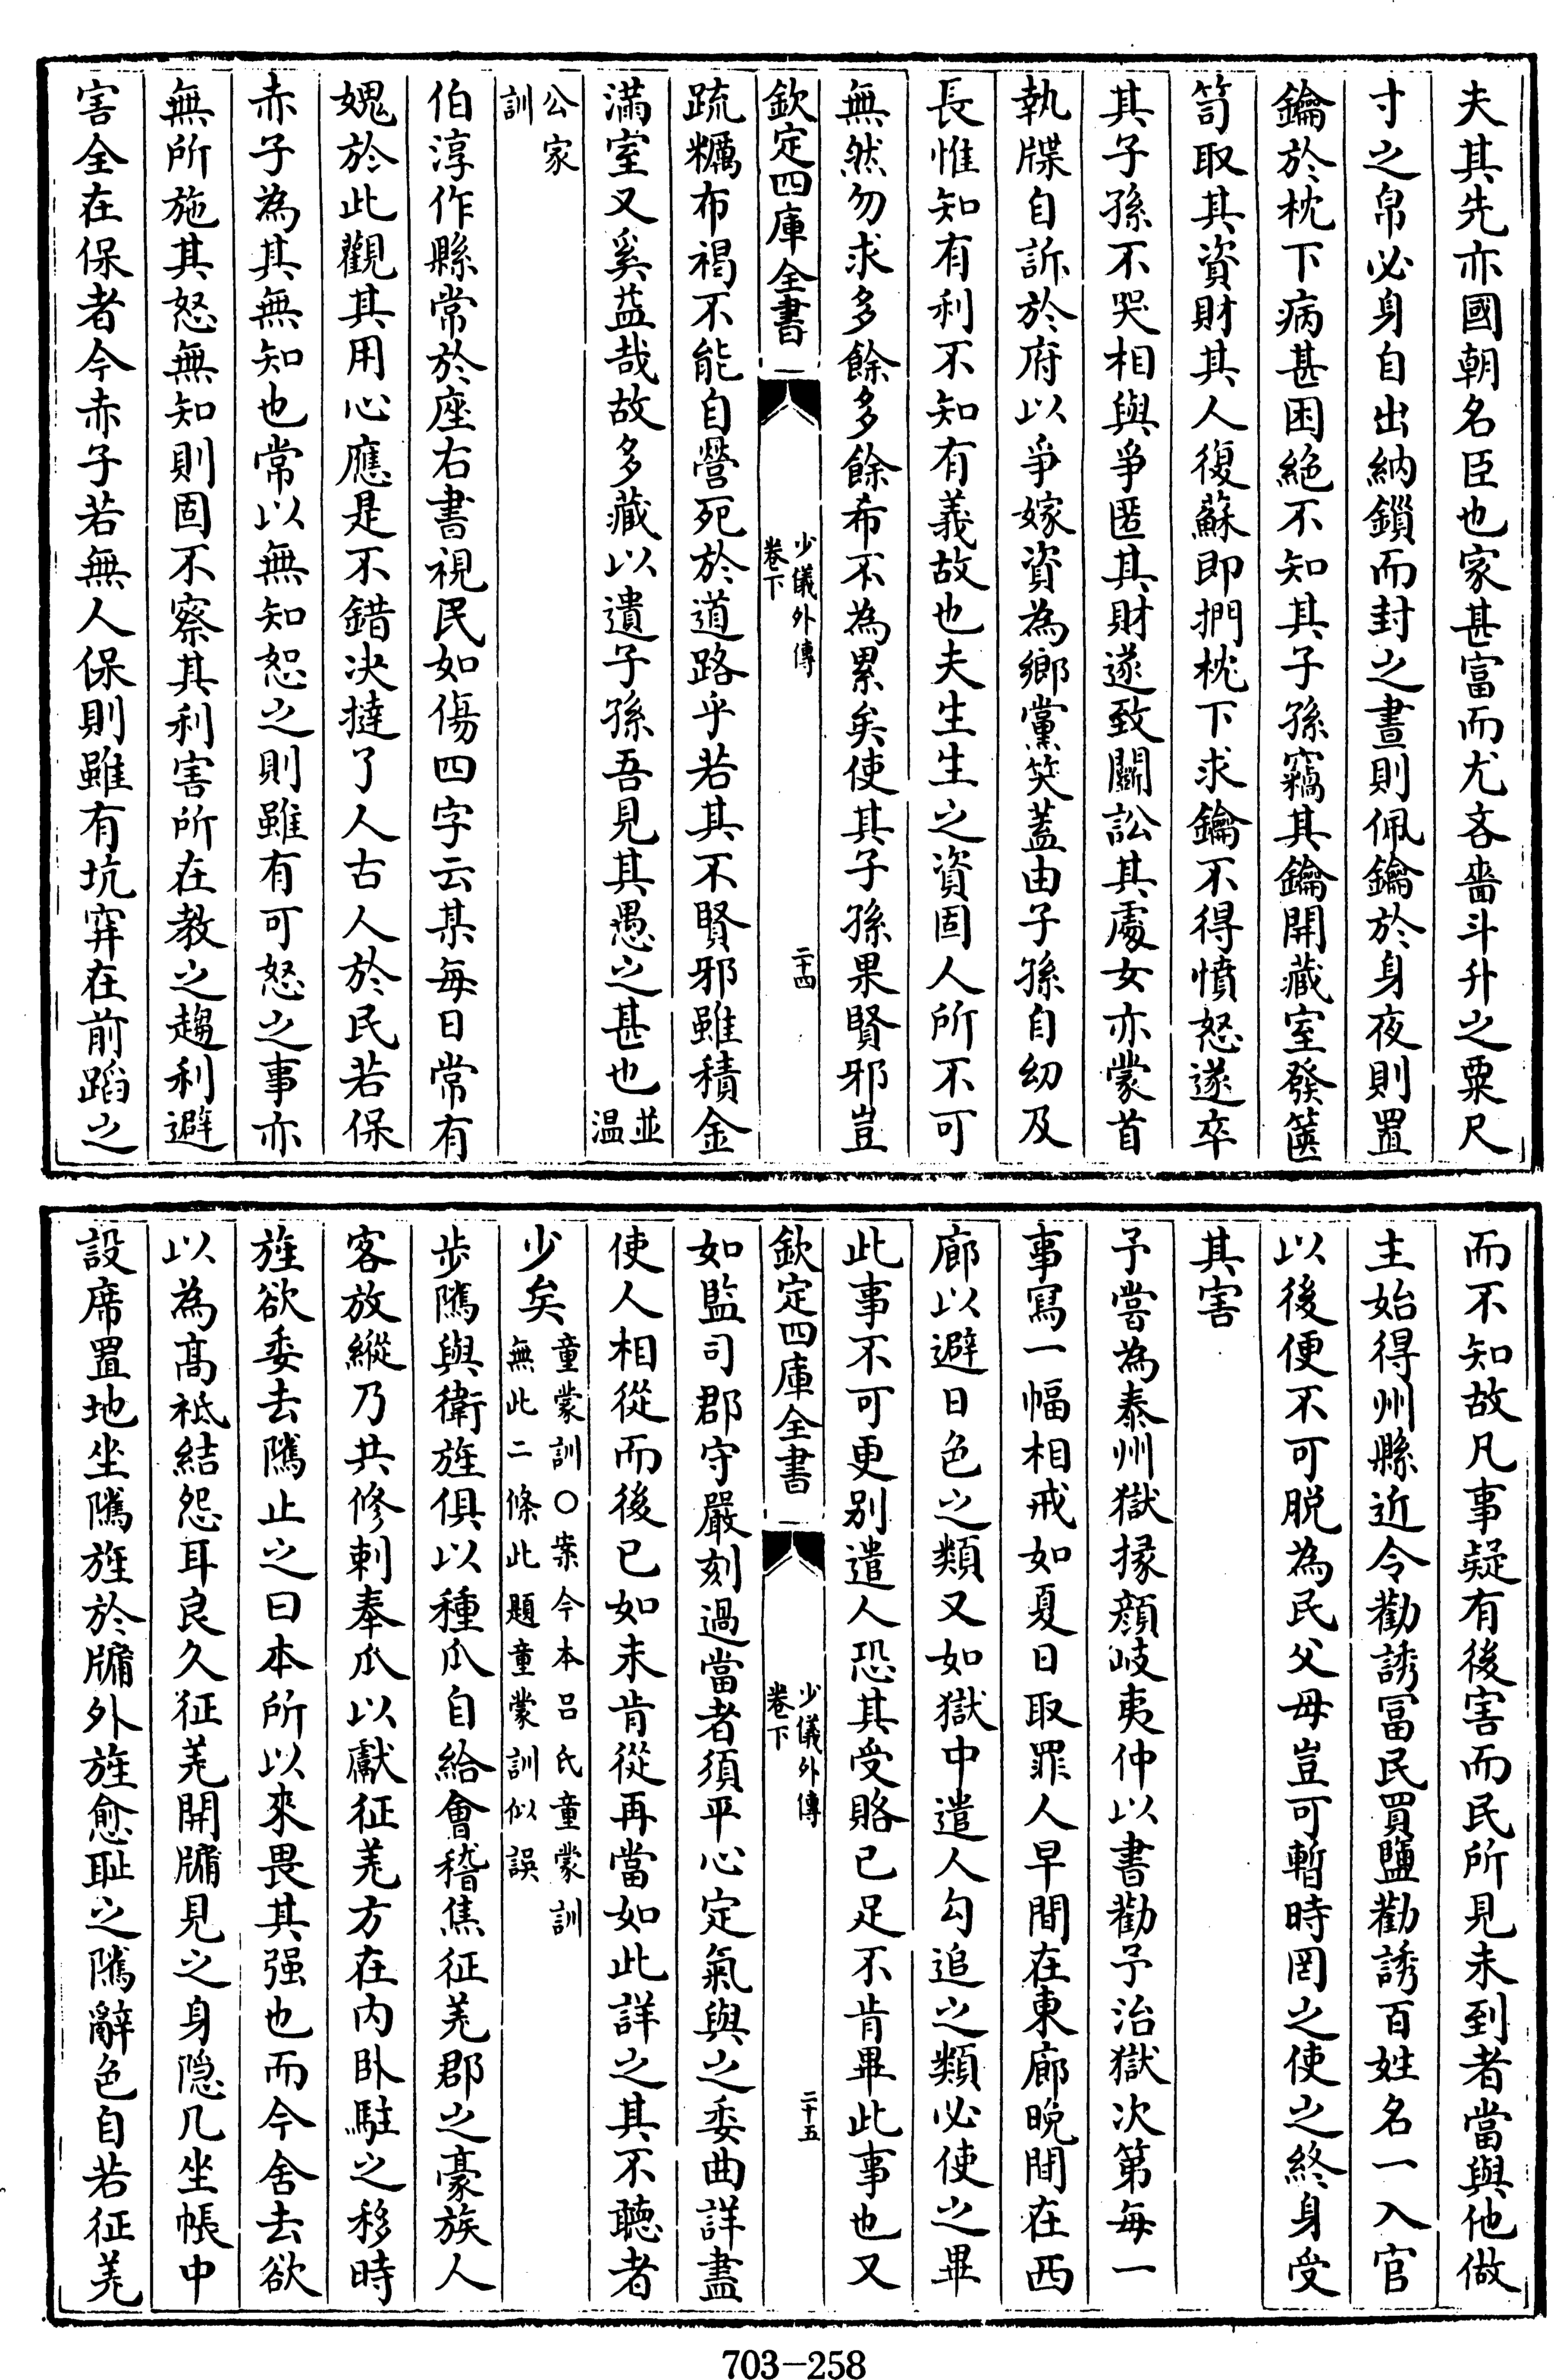 夫其先亦國朝名臣也家甚富而尤吝嗇斗升之粟尺
寸之帛必身自出納鎖而封之晝則佩鑰於身夜則置
鑰於枕下病甚困絶不知其子孫竊其鑰開藏室發篋
笥取其資財其人復蘇即捫枕下求鑰不得憤怒遂卒
其子孫不哭相與爭匿其財遂致鬭訟其處女亦蒙首
執牒自訴於府以爭嫁資為鄉黨笑蓋由子孫自幼及
長惟知有利不知有義故也夫生生之資固人所不可
無然勿求多餘多餘希不為累矣使其子孫果賢邪豈
欽定四庫全書
少儀外傳
卷下
二十四
疏糲布褐不能自營死於道路乎若其不賢邪雖積金
滿室又奚益哉故多藏以遺子孫吾見其愚之甚也並
溫
公家
訓
伯淳作縣常於座右書視民如傷四字云某每日常有
媿於此觀其用心應是不錯决撻了人古人於民若保
赤子為其無知也常以無知恕之則雖有可怒之事亦
無所施其怒無知則固不察其利害所在教之趨利避
害全在保者今赤子若無人保則雖有坑穽在前蹈之
而不知故凡事疑有後害而民所見未到者當與他做
主始得州縣近令勸誘冨民買鹽勸誘百姓名一入官
以後便不可脱為民父母豈可暫時罔之使之終身受
其害
予嘗為泰州獄掾顔岐夷仲以書勸予治獄次第每一
事寫一幅相戒如夏日取罪人早間在東廊晚間在西
廊以避日色之類又如獄中遣人勾追之類必使之畢
此事不可更别遣人恐其受賂已足不肯畢此事也又
欽定四庫全書
少儀外傳
卷下
二十五
如監司郡守嚴刻過當者須平心定氣與之委曲詳盡
使人相從而後已如未肯從再當如此詳之其不聽者
少矣童蒙訓○案今本吕氏童蒙訓
無此二條此題童蒙訓似誤
步隲與衛旌俱以種瓜自給會稽焦征羌郡之豪族人
客放縱乃共修刺奉瓜以獻征羌方在内卧駐之移時
旌欲委去隲止之曰本所以來畏其强也而今舍去欲
以為髙祗結怨耳良久征羌開牖見之身隐几坐帳中
設席置地坐隲旌於牖外旌愈耻之隲辭色自若征羌
703-258